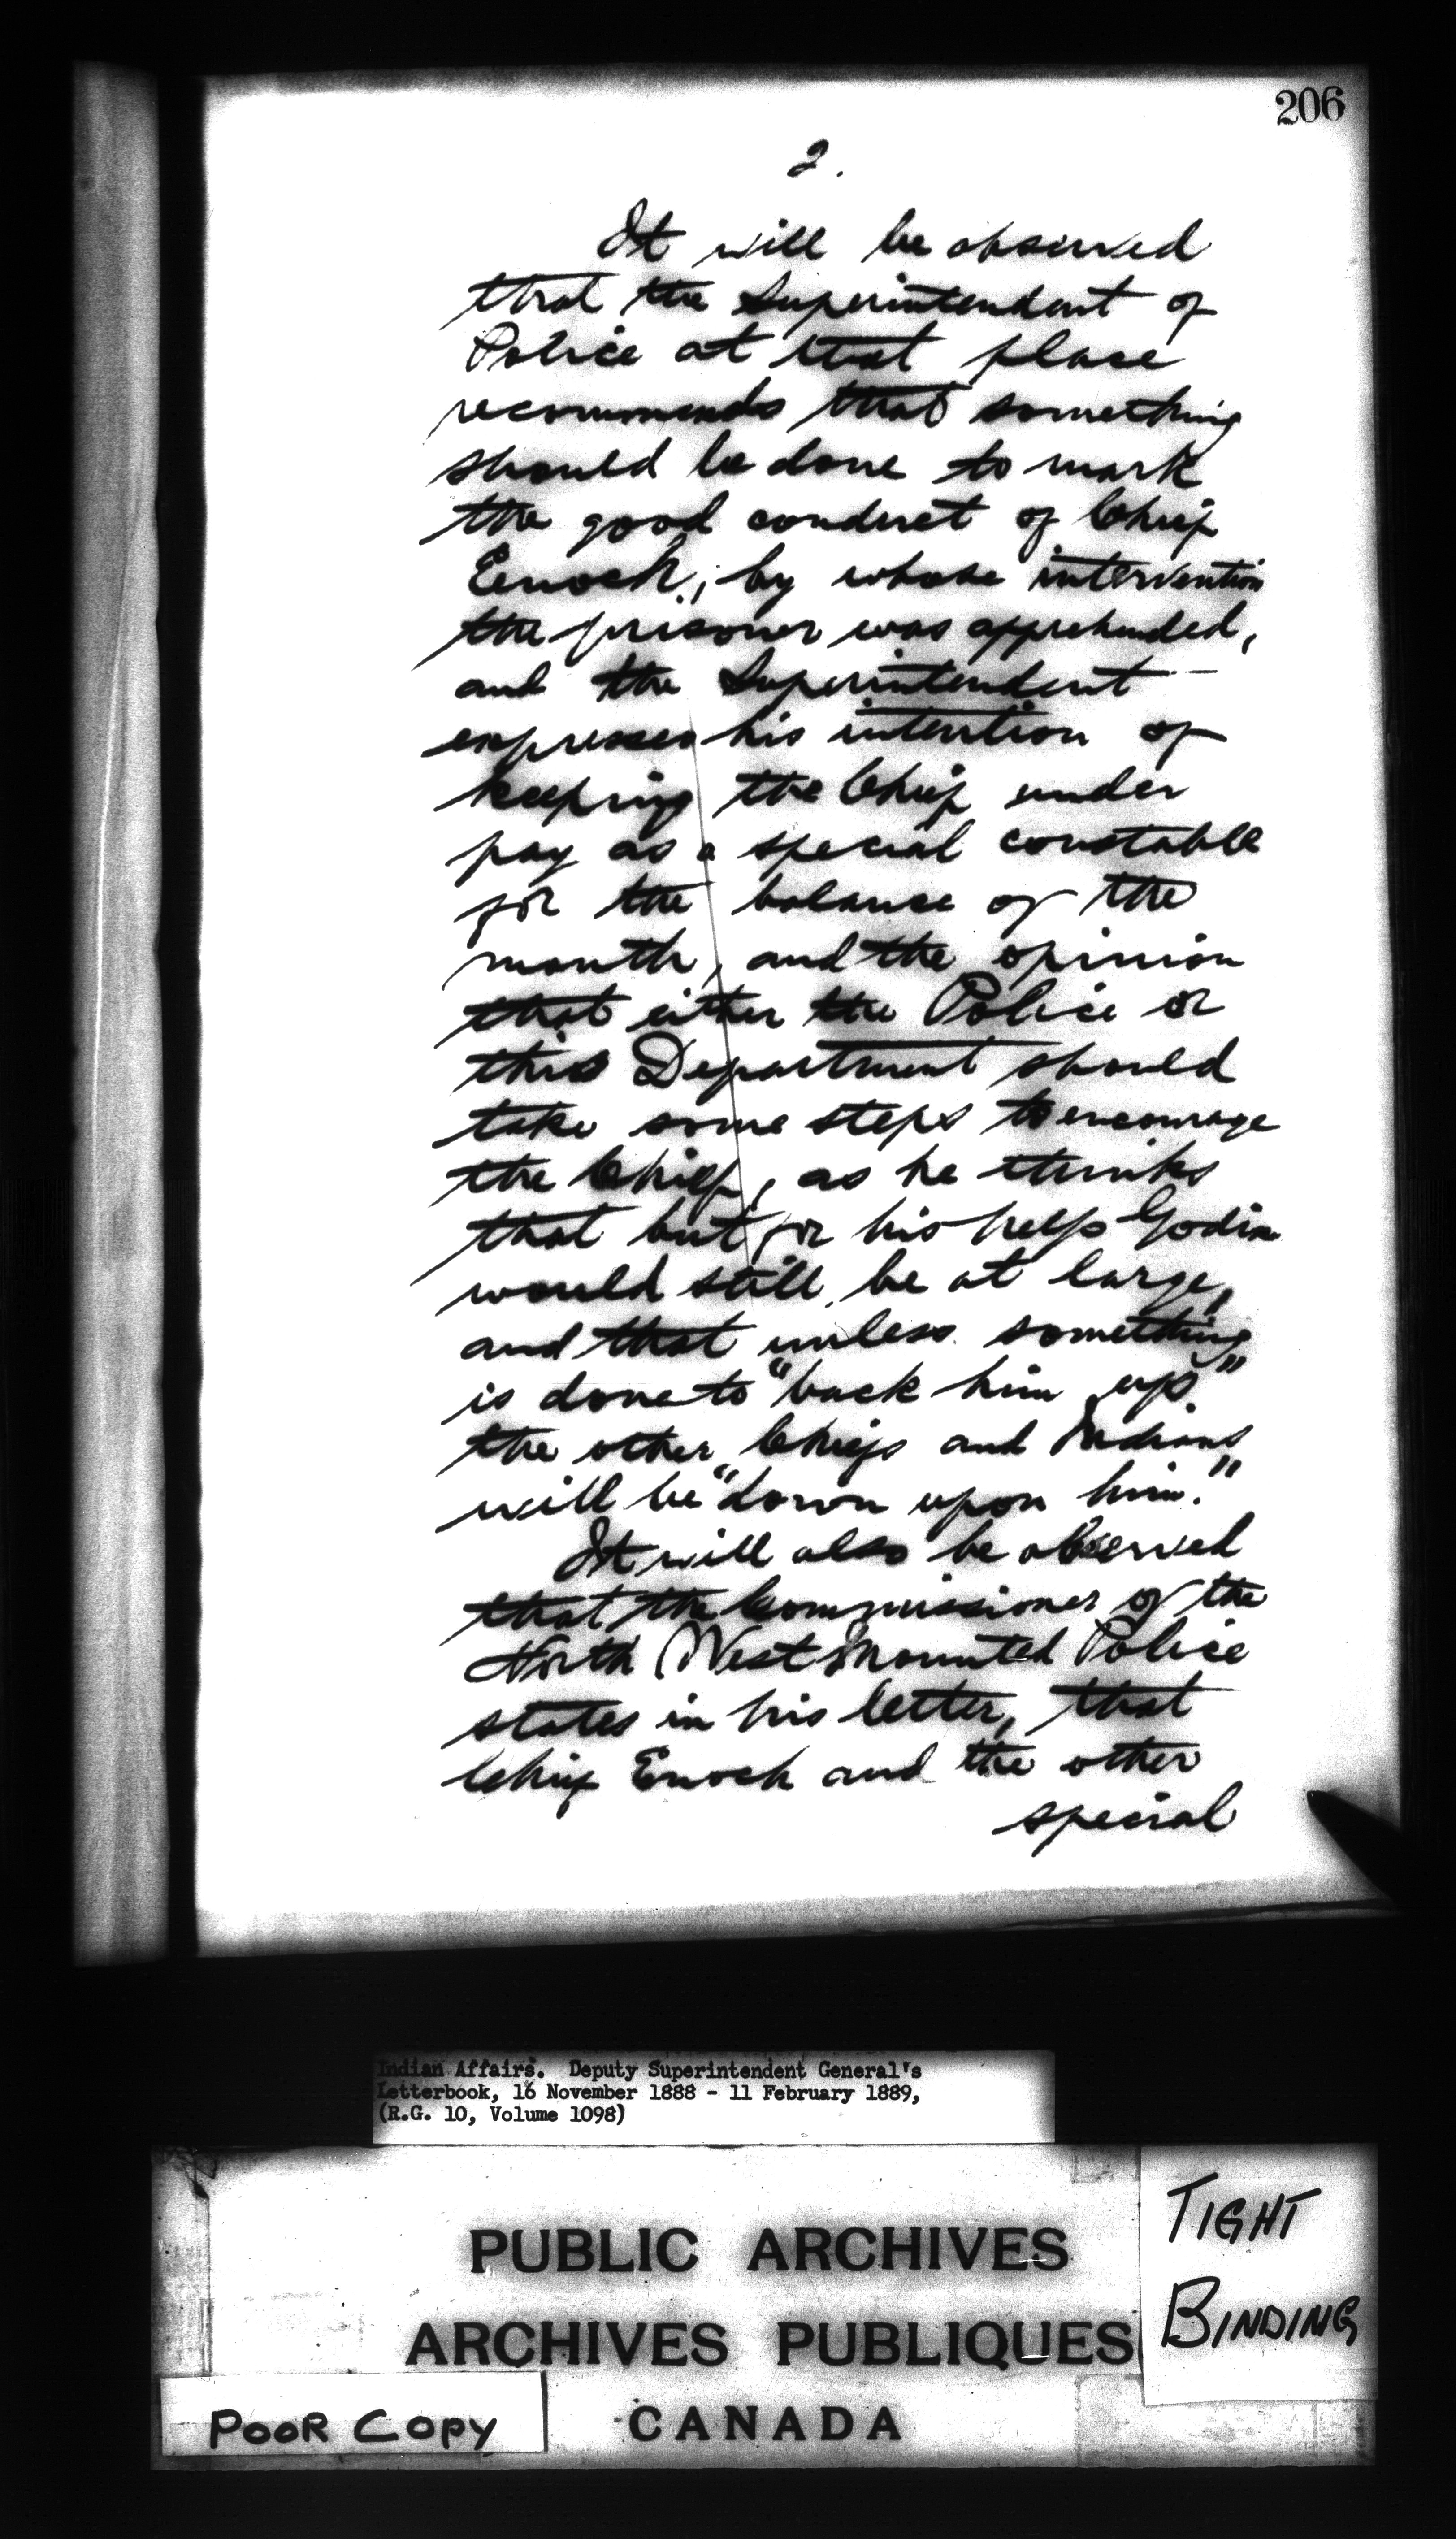 206
2.
It will be observed
that the Superintendent of
Police at that place
recommends that something
should be done to mark
the good conduct of Chief
Enoch, by whose intervention
the prisoner was apprehended,
and the Superintendent
expresses his intention of
keeping the Chief under
pay as a special constable
for the balance of the
month, and the opinion
that either the Police or
this Department should
take some steps to encourage
the Chief, as he thinks
that but for his help Godin
would still be at large,
and that unless something
is done to "back him up"
the other Chiefs and Indians
will be "down upon him."
It will also be observed
that the Commissioner of the
North West Mounted Police
states in his letter, that
Chief Enoch and the other
special
Indian Affairs. Deputy Superintendent General's
Letterbook, 16 November 1888 - 11 February 1889,
(R.G. 10, Volume 1098)
PUBLIC ARCHIVES
ARCHIVES PUBLIQUES
CANADA
TIGHT
BINDING
POOR COPY